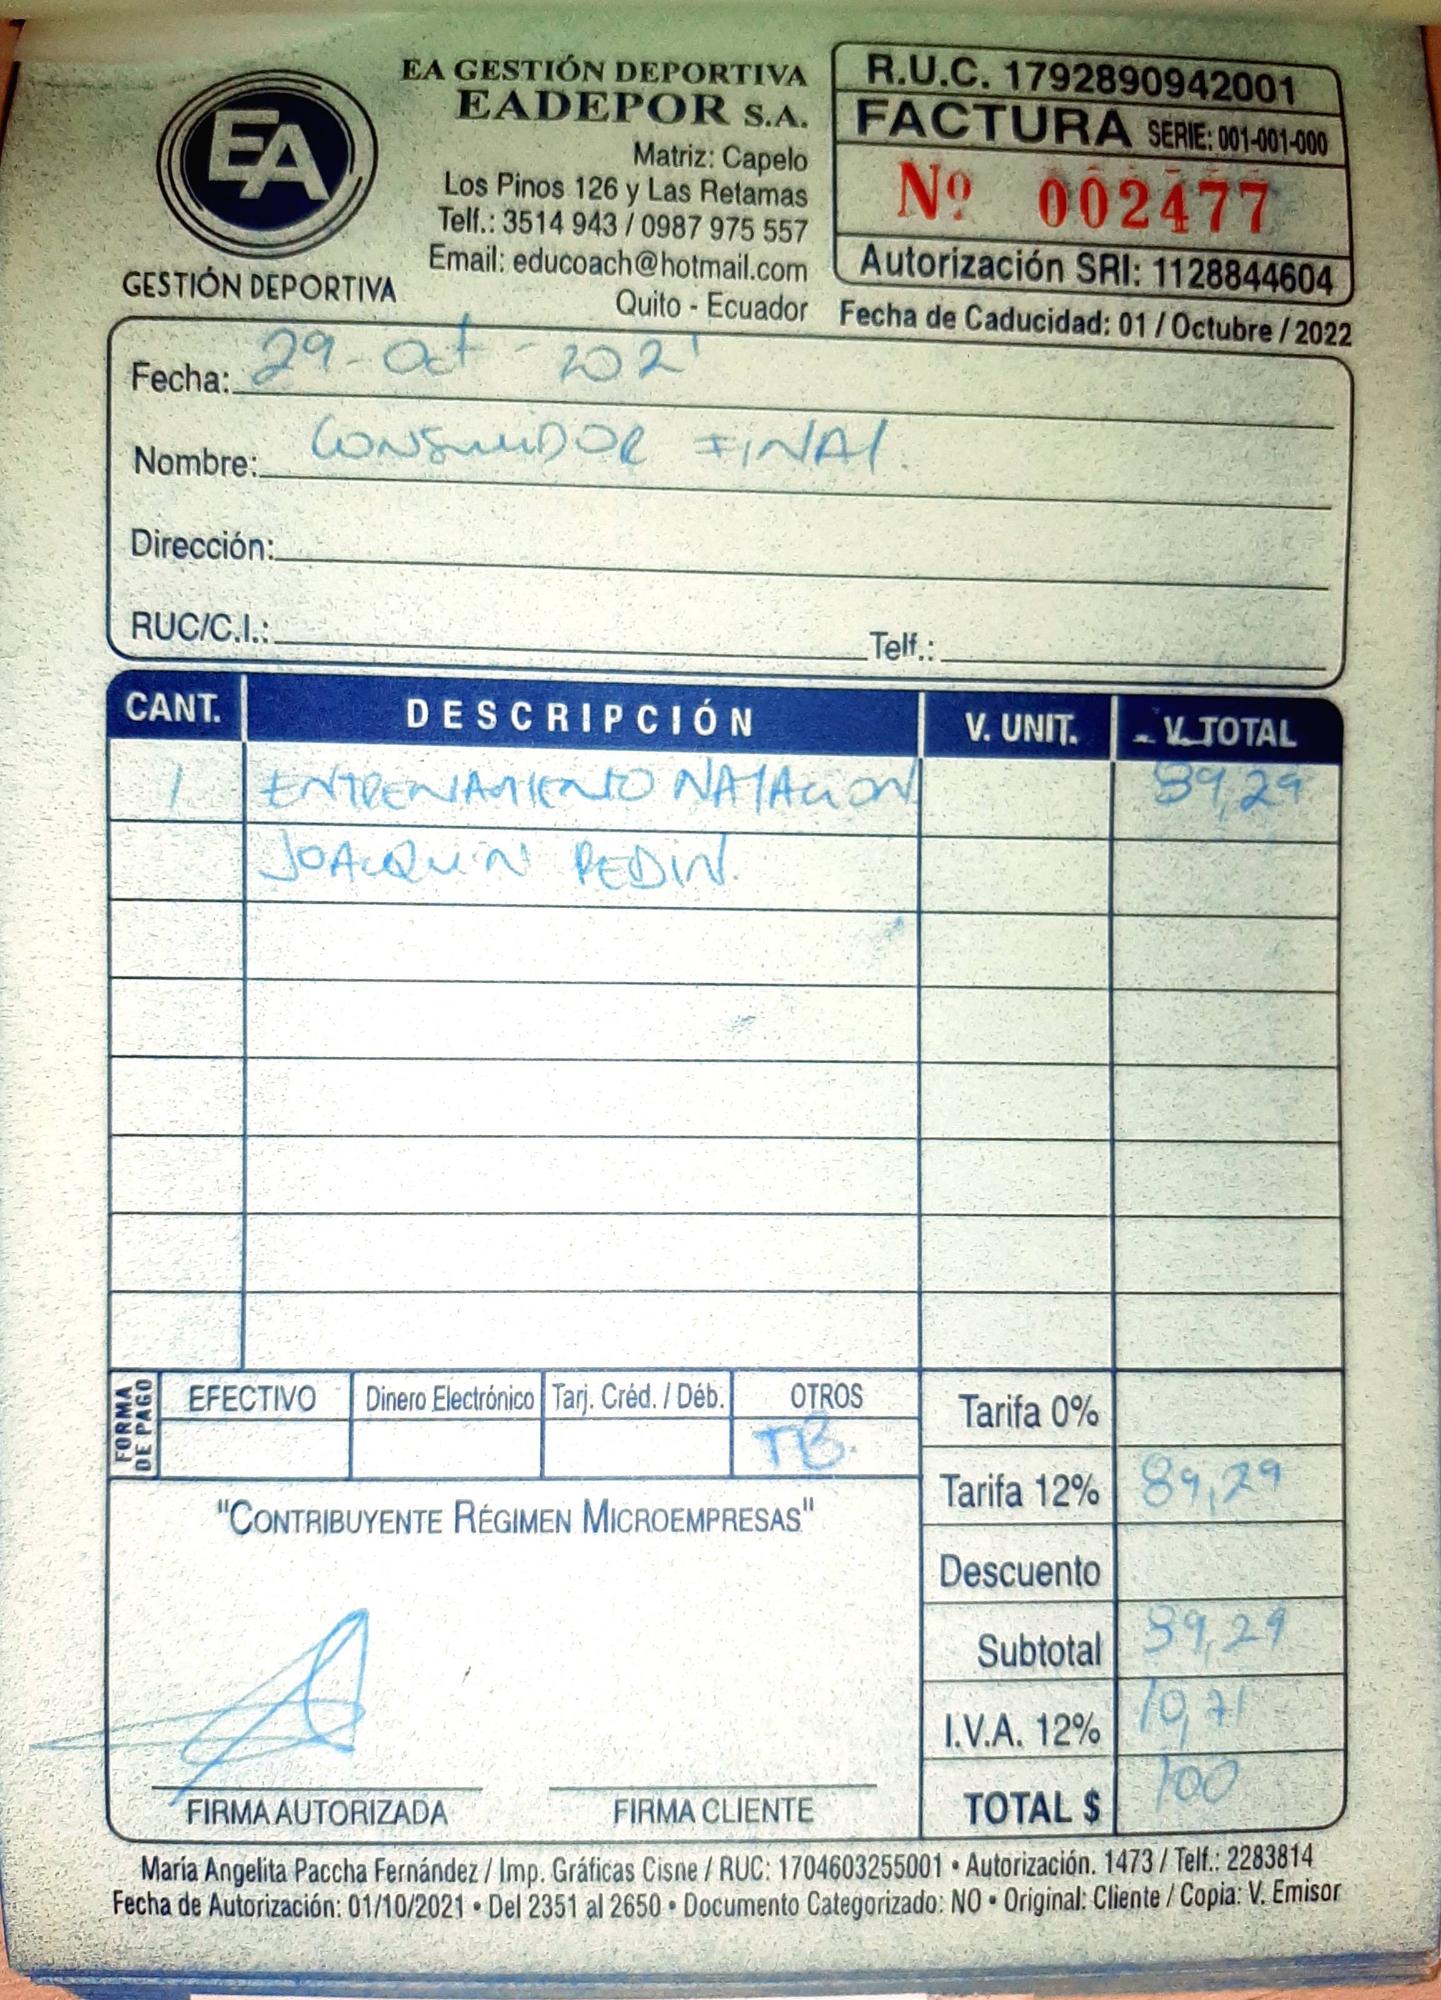 EA
GESTIÓN DEPORTIVA
EA GESTIÓN DEPORTIVA
EADEPOR S.A.
Matriz: Capelo
Los Pinos 126 y Las Retamas
Telf.: 3514 943 / 0987 975 557
Email: educoach@hotmail.com
Quito - Ecuador
R.U.C. 1792890942001
FACTURA SERIE: 001-001-000
Nº 002477
Autorización SRI: 1128844604
Fecha de Caducidad: 01 / Octubre / 2022
Fecha: 29-Oct-2021
Nombre: CONSUMIDOR FINAL.
Dirección:
RUC/C.I.: Telf.:
CANT. DESCRIPCIÓN V. UNIT. V. TOTAL
1 ENTRENAMIENTO NATACION 89,29
JOAQUIN PEDIN.
FORMA DE PAGO
EFECTIVO Dinero Electrónico Tarj. Créd. / Déb. OTROS
TB.
Tarifa 0%
Tarifa 12% 89,29
Descuento
Subtotal 89,29
I.V.A. 12% 10,71
TOTAL $ 100
"CONTRIBUYENTE RÉGIMEN MICROEMPRESAS"
FIRMA AUTORIZADA FIRMA CLIENTE
María Angelita Paccha Fernández / Imp. Gráficas Cisne / RUC: 1704603255001 • Autorización. 1473 / Telf.: 2283814
Fecha de Autorización: 01/10/2021 • Del 2351 al 2650 • Documento Categorizado: NO • Original: Cliente / Copia: V. Emisor